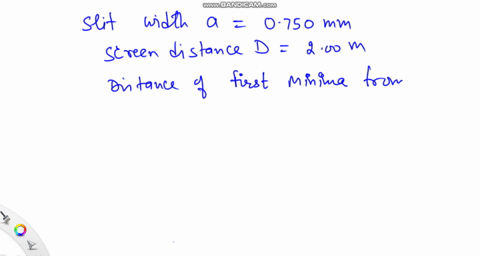 www.BANDICAM.com
Slit width a = 0.750 mm
Screen distance D = 2.00 m
Distance of first minima from